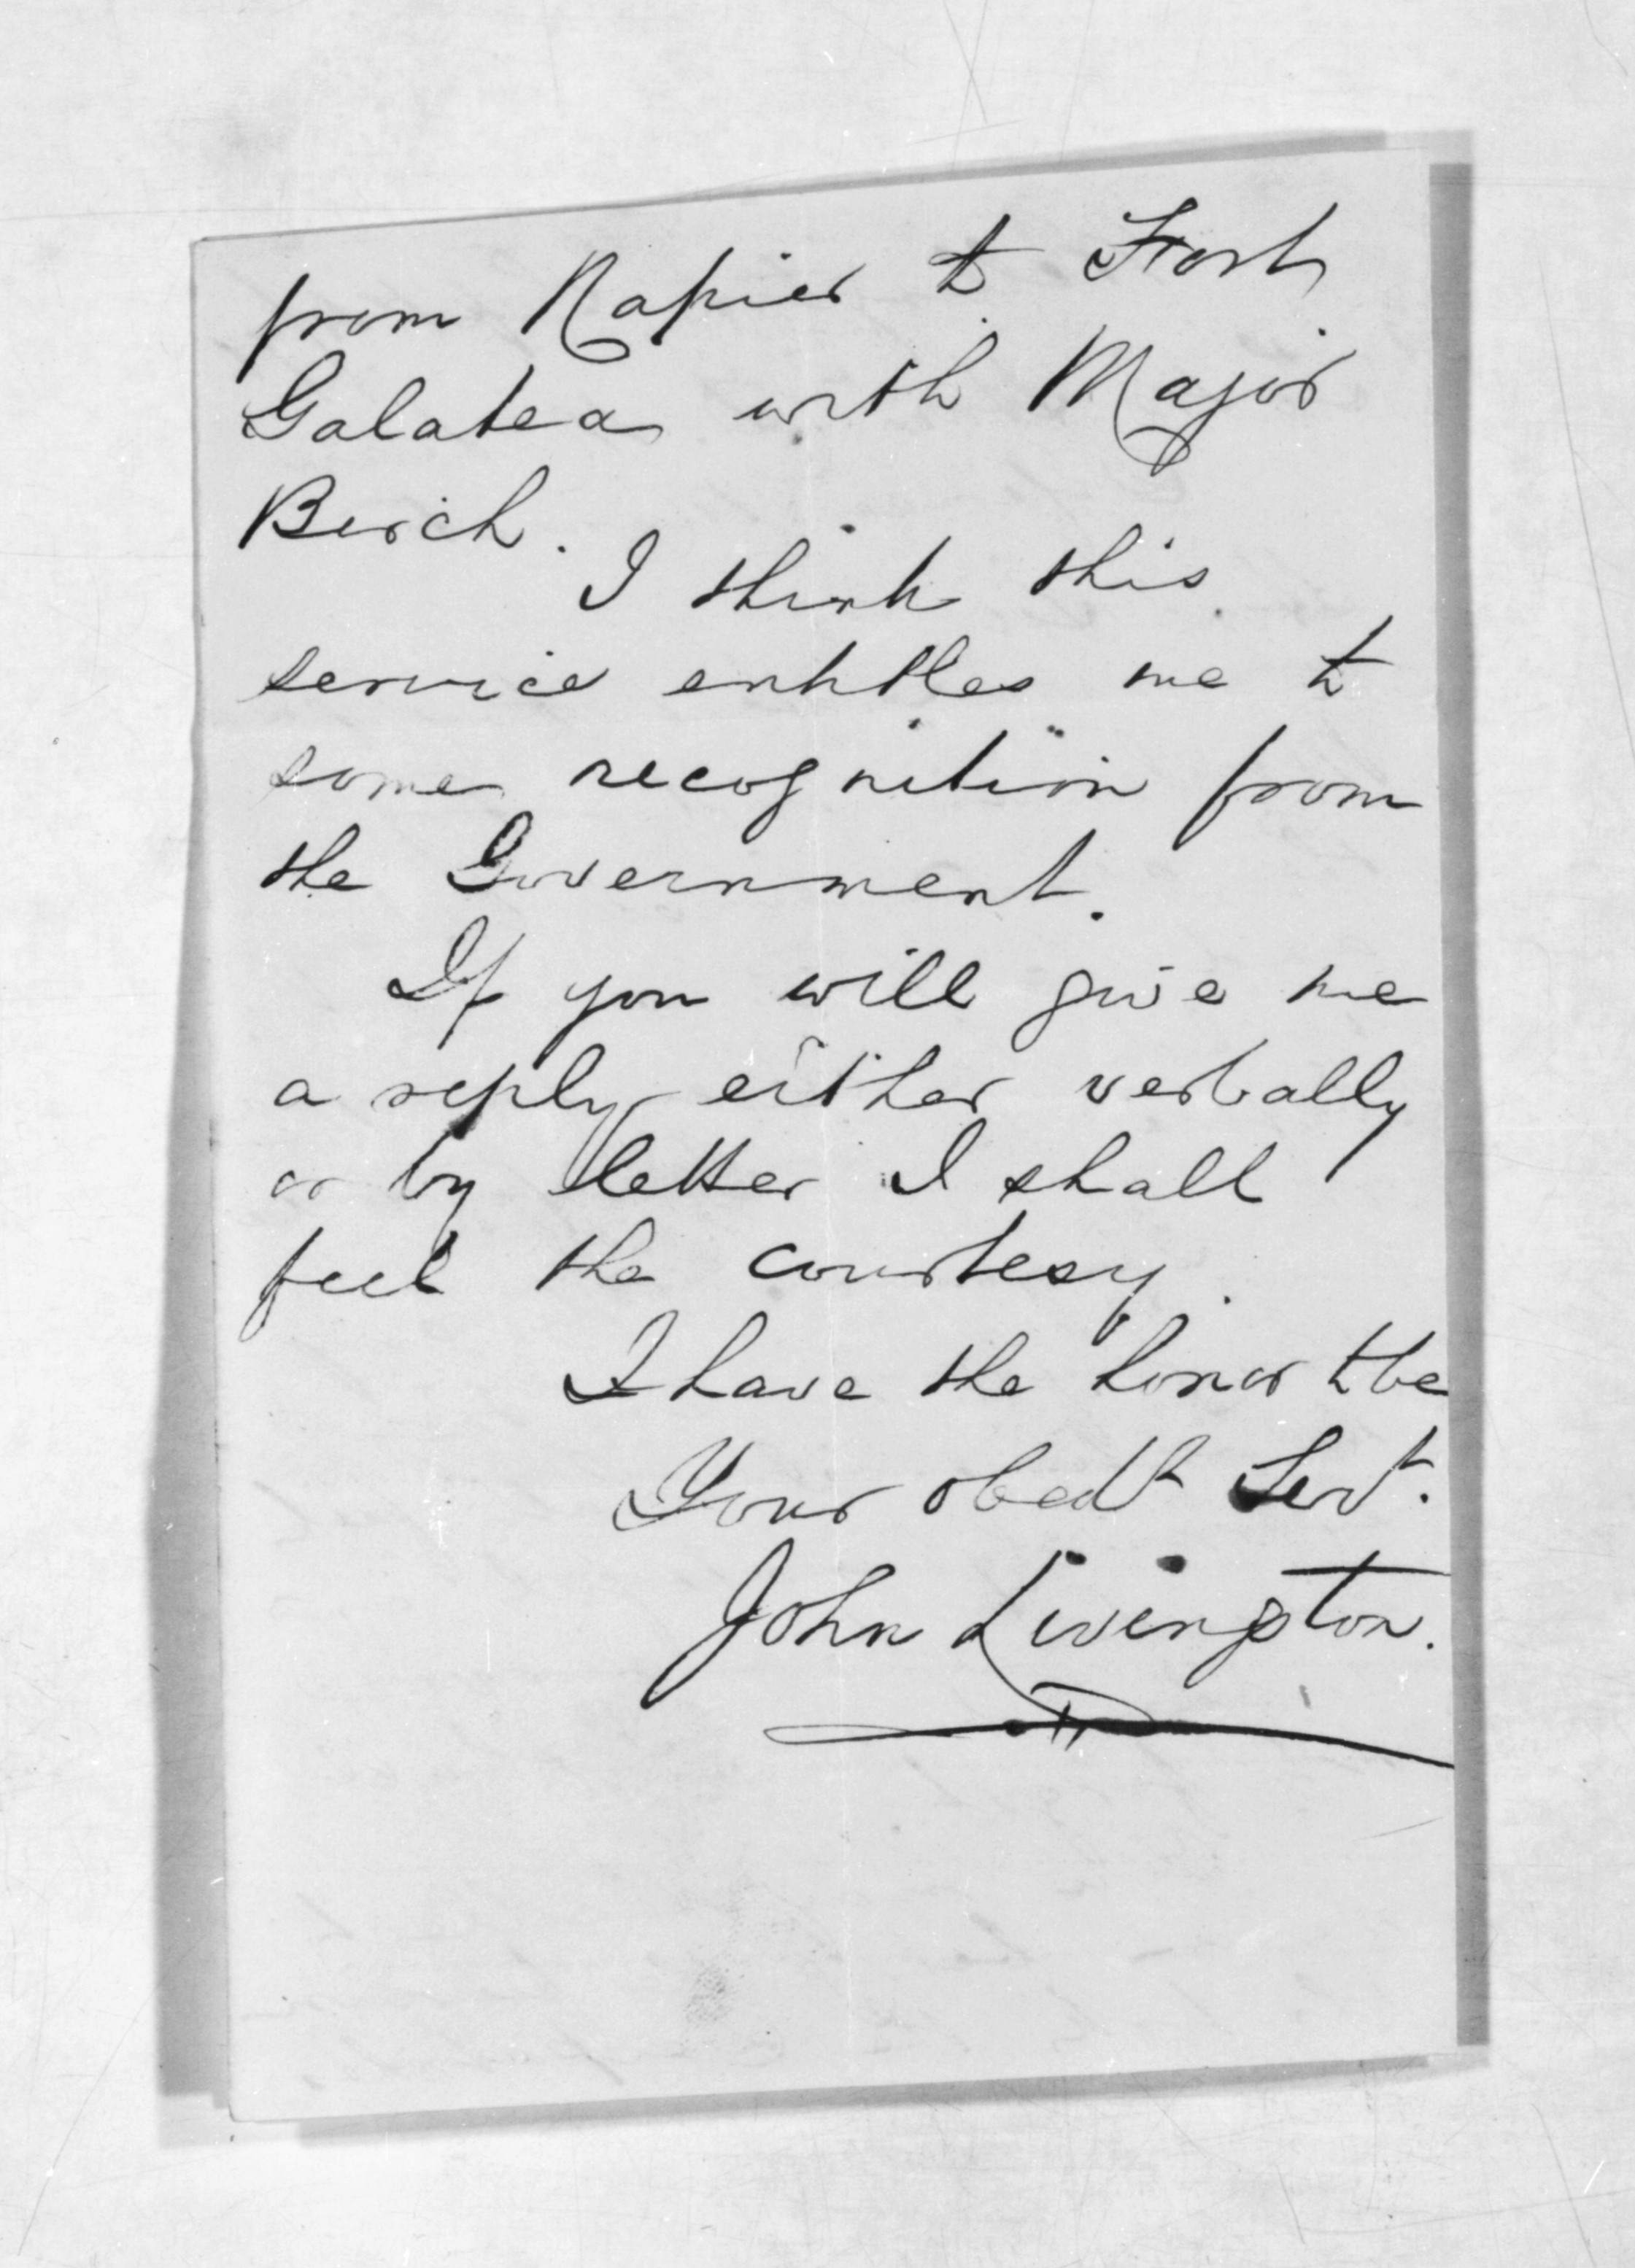 from Napier to Fort
Galatea with Major
Birch.
I think this
service entitles me to
some recognition from
the Government.
If you will give me
a reply either verbally
or by letter I shall
feel the courtesy.
I have the honor to be
Your obedt Servt.
John Livingston.